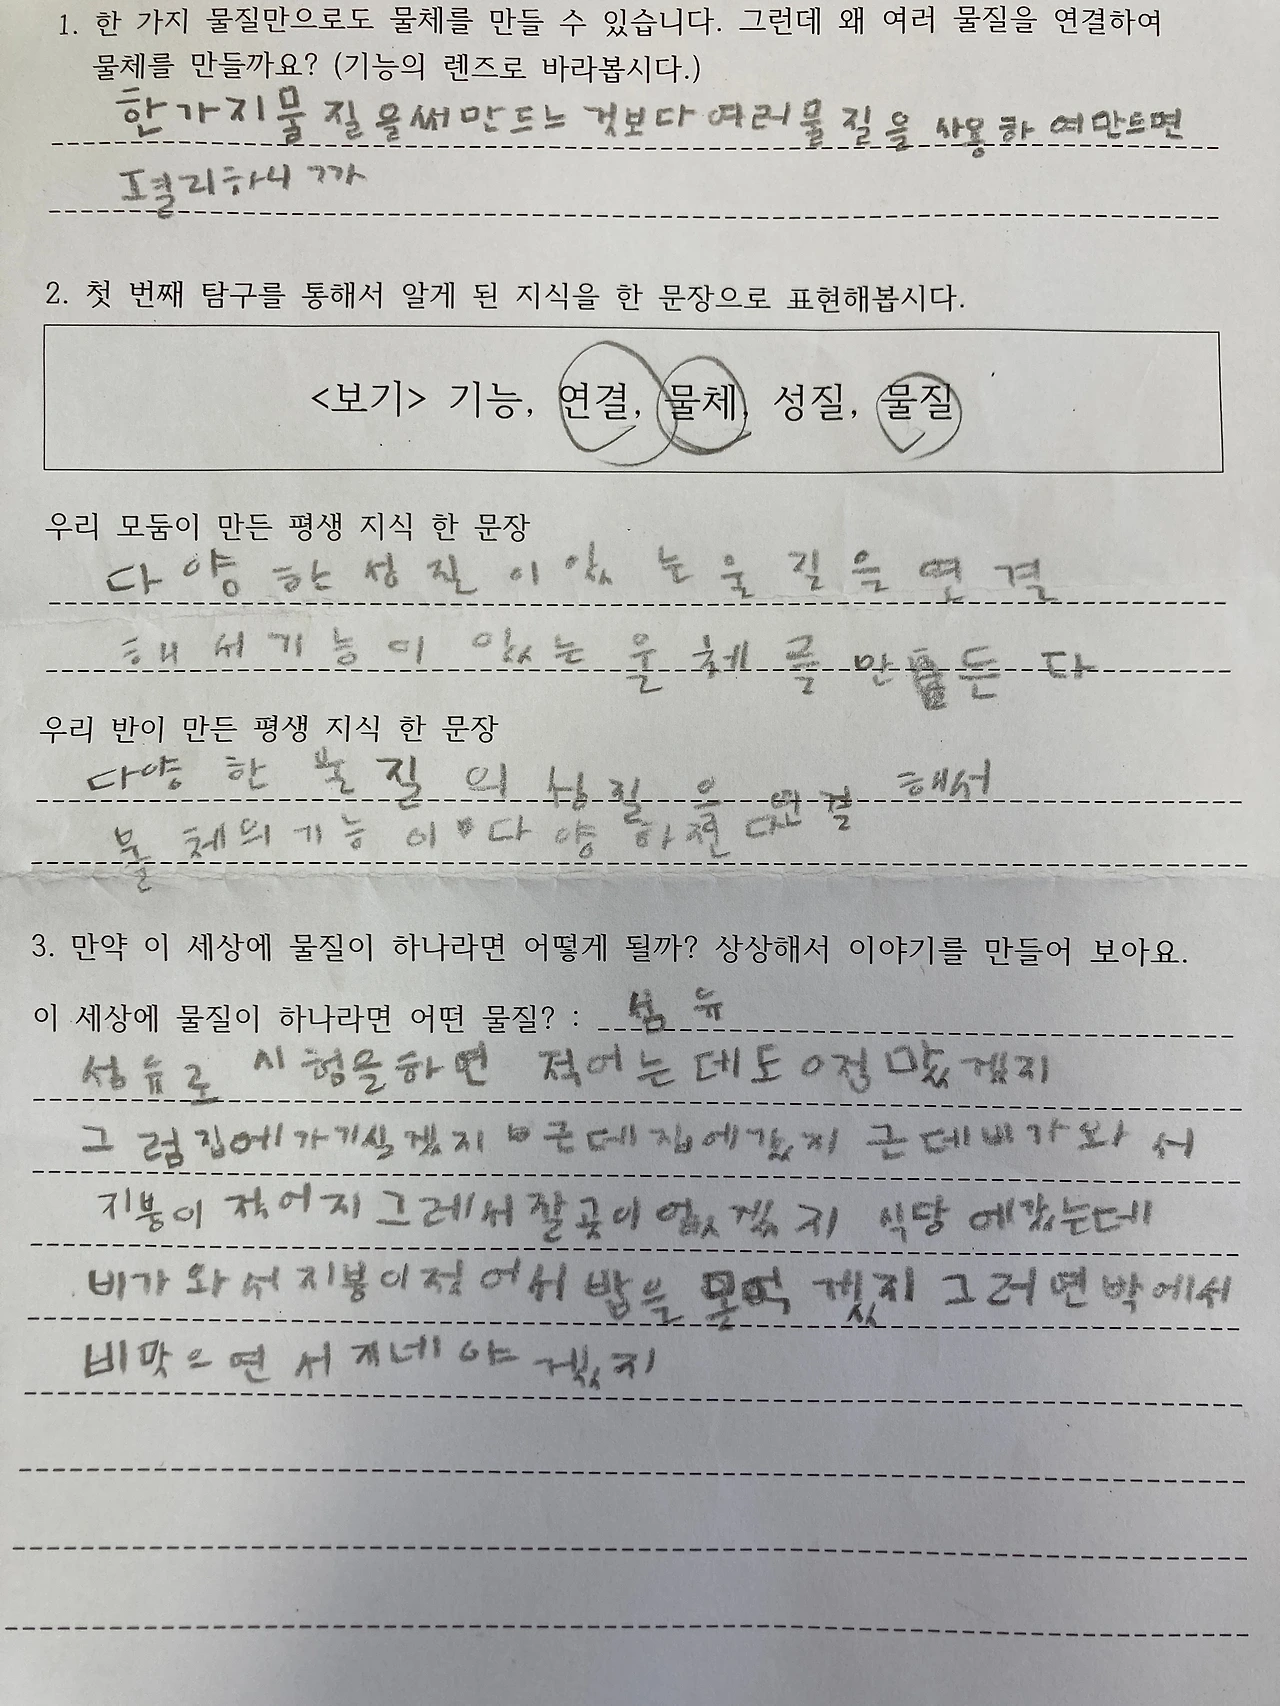 1. 한 가지 물질만으로도 물체를 만들 수 있습니다. 그런데 왜 여러 물질을 연결하여
물체를 만들까요? (기능의 렌즈로 바라봅시다.)
한가지물질을써만드느것보다여러물질을 사용하여만드면
펼리하니까
2. 첫 번째 탐구를 통해서 알게 된 지식을 한 문장으로 표현해봅시다.
<보기> 기능, 연결, 물체, 성질, 물질
우리 모둠이 만든 평생 지식 한 문장
다양한성질이있는물질을연결
해서기능이 있는물체를만든다
우리 반이 만든 평생 지식 한 문장
다양한물질의성질을연결해서
물체의기능이다양하젼다
3. 만약 이 세상에 물질이 하나라면 어떻게 될까? 상상해서 이야기를 만들어 보아요.
이 세상에 물질이 하나라면 어떤 물질? : 섬유
섬유로 시험을하면 적어는데도 0점맞겠지
그럼집에가기싫겠지 근데집에갔지 근데비가와서
지붕이 젖어지그레서잘곳이 없겠지 식당에갔는데
비가와서지붕이젖어서 밥을못먹겠지그러면박에서
비맞으면서지네야겠지